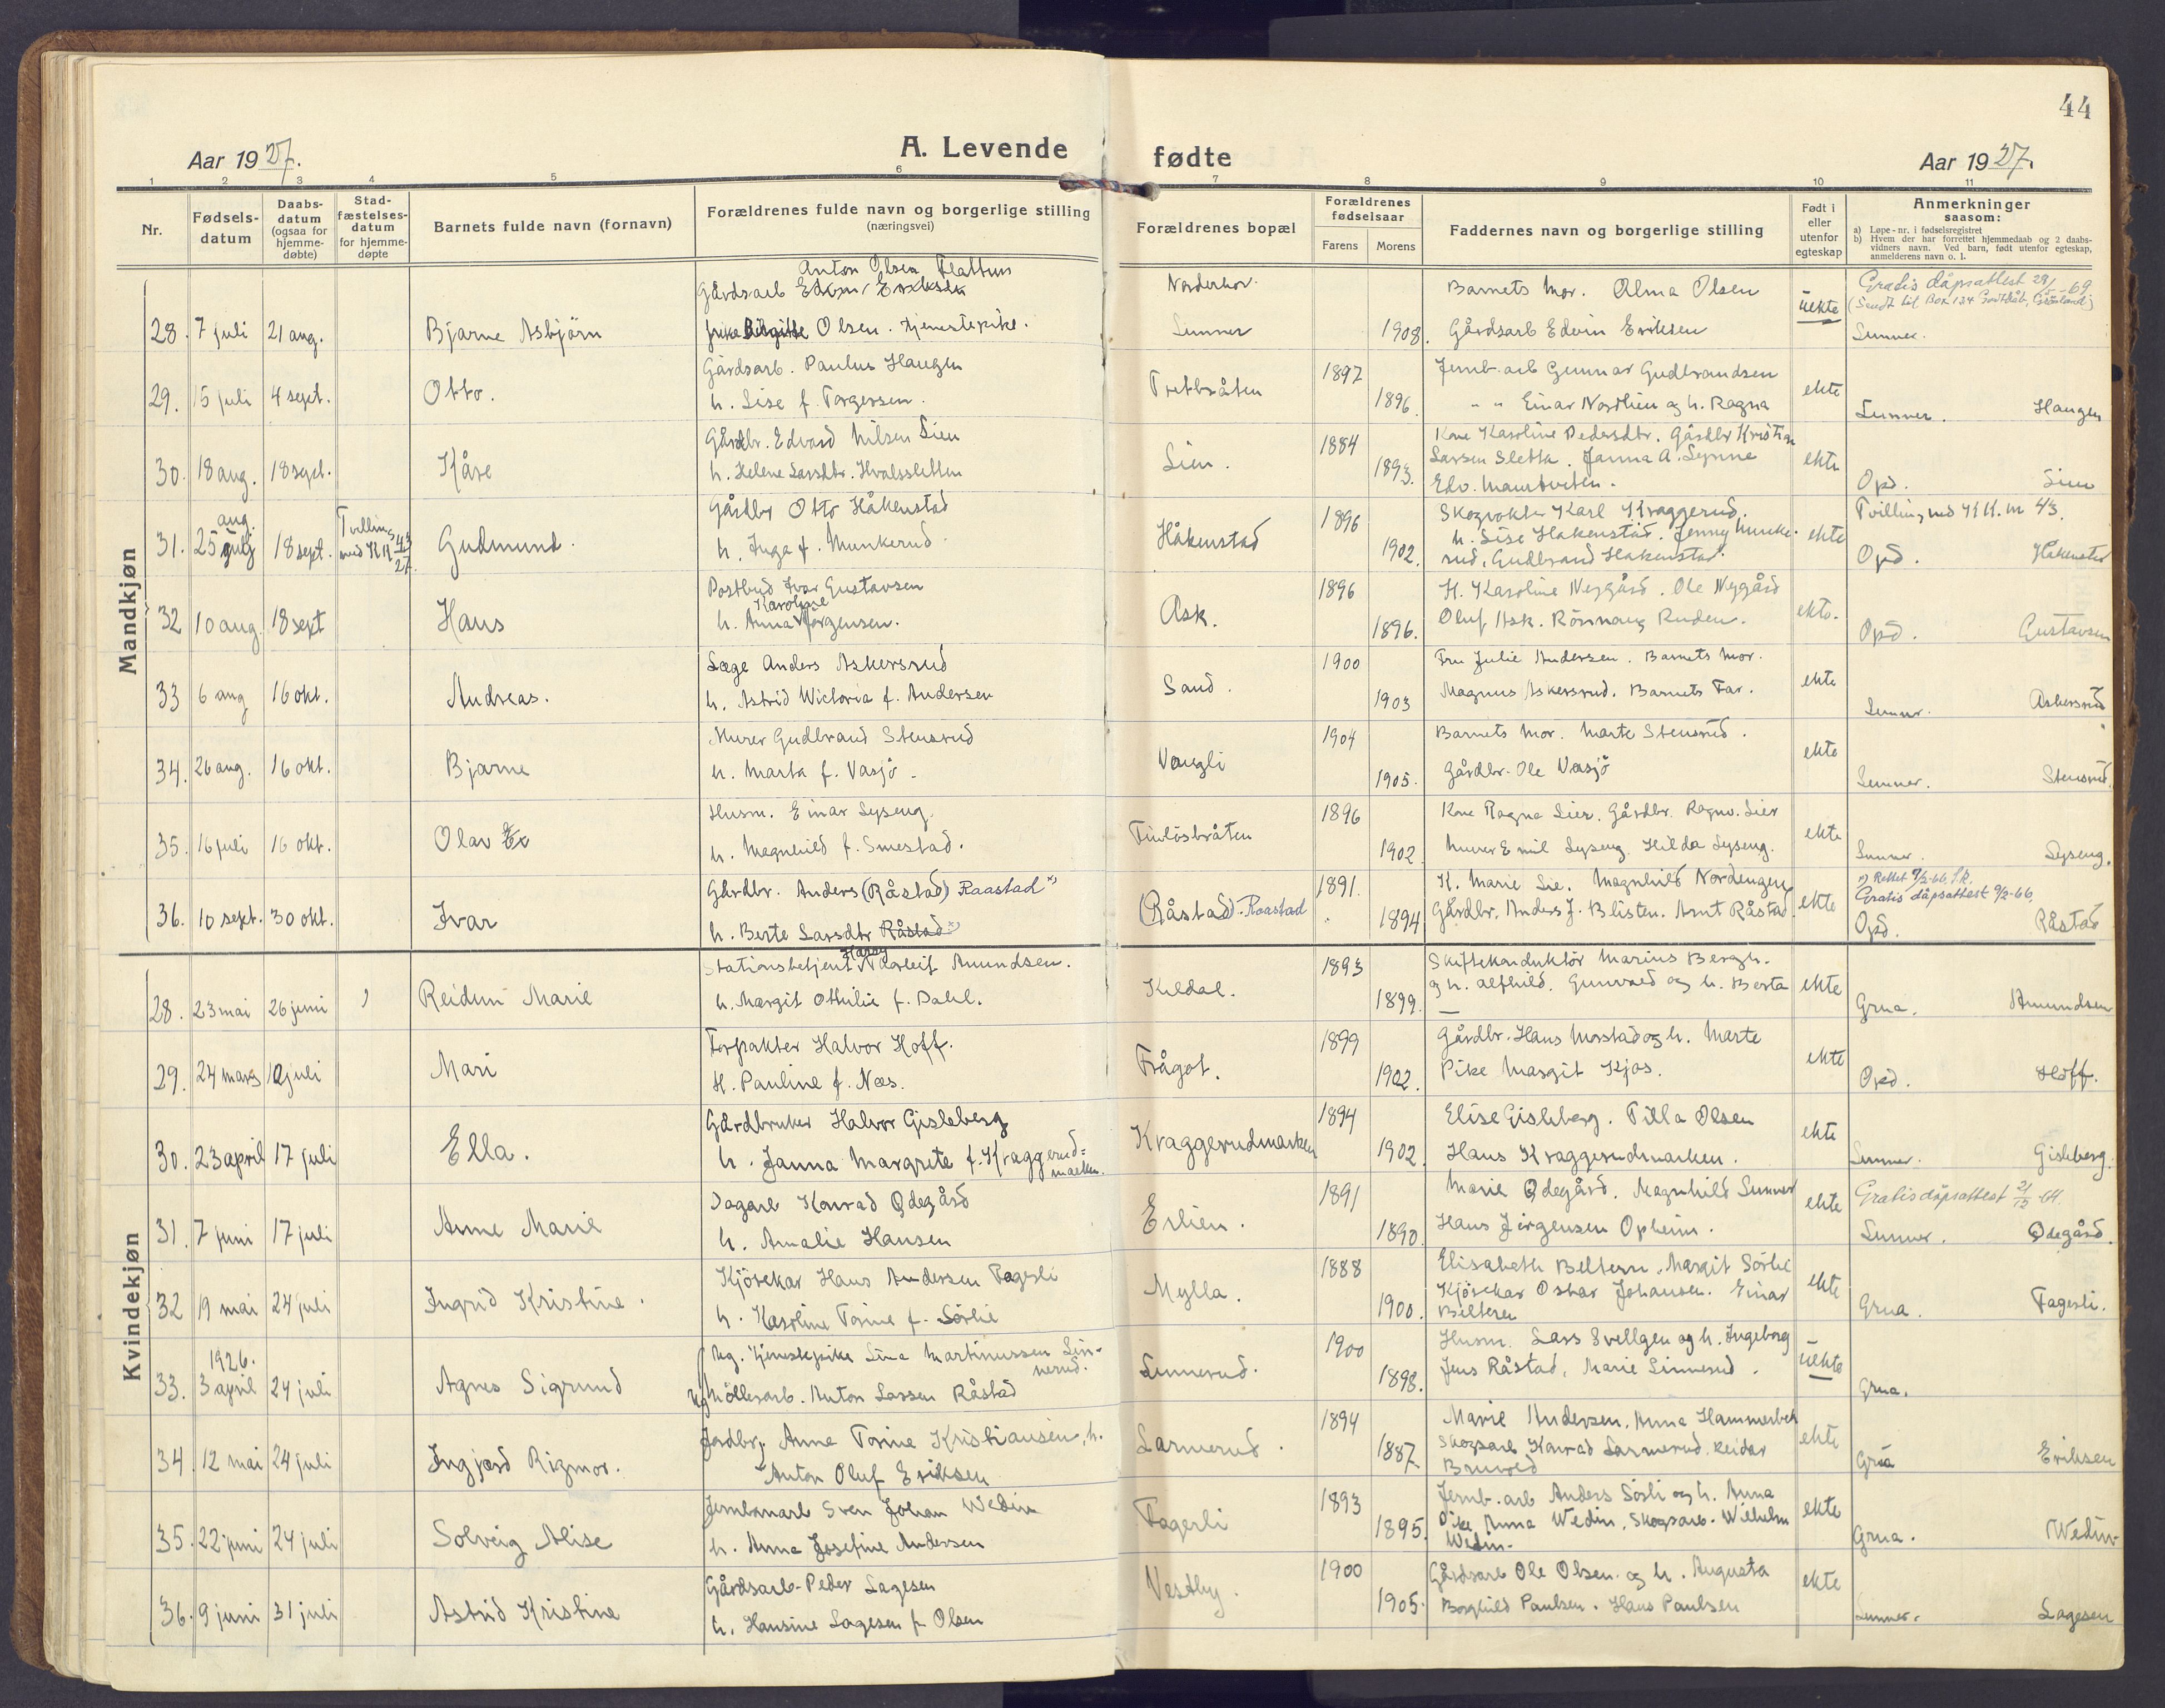 44
Aar 1927.
A. Levende fødte
Aar 1927.
1 2 3 4 5 6 7 8 9 10 11
Nr.
Fødsels-
datum
Daabs-
datum
(ogsaa for
hjemme-
døbte)
Stad-
fæstelses-
datum
for hjemme-
døpte
Barnets fulde navn (fornavn)
Forældrenes fulde navn og borgerlige stilling
(næringsvei)
Forældrenes bopæl
Forældrenes
fødselsaar
Farens Morens
Faddernes navn og borgerlige stilling
Født i
eller
utenfor
egteskap
Anmerkninger
saasom:
a) Løpe-nr. i fødselsregistret
b) Hvem der har forrettet hjemmedaab og 2 daabs-
vidners navn. Ved barn, født utenfor egteskap,
anmelderens navn o. l.
Mandkjøn
28. 7 juli 21 aug. Bjarne Asbjörn
Anton Olsen Flattum
Gårdsarb Edvin Eriksen
pike Birgitte Olsen. tjenestepike.
Norderhov.
Lunner
1908.
Barnets mor. Alma Olsen
Gårdsarb Edvin Eriksen
uekte
Gratis dåpsattest
(Sendt til Box 124 Godthåb, Grönland)
Lunner.
29. 15 juli 4 sept. Otto.
Gårdsarb. Paulus Haugen
h. Lise f. Torgersen.
Tretbråten
1897
1896.
Jernb. arb Gunnar Gudbrandsen
" " Einar Nordlien og h. Ragna
ekte
Lunner. Haugen
30. 18 aug. 18 sept. Kåre
Gårdbr. Edvard Nilsen Lien
h. Helene Larsdtr. Hvalsletten
Lien.
1884
1893.
Kone Karoline Pedersdtr. Gårdbr Kristian
Larsen Sletta. Janna A. Lynne
Edv. Maurtveten.
ekte
Opd. Lien
31. 25 juli aug. 18 sept. Tvilling med KK 43 27. Gudmund.
Gårdbr Otto Håkenstad
h. Inga f. Munkerud
Håkenstad
1896
1902.
Skogvokter Karl Kraggerud.
h. Lise Hakenstad. Jenny Munke-
rud, Gudbrand Hakenstad.
ekte
Tvilling med KK. nr 43.
Opd. Håkenstad
32 10 aug. 18 sept Hans
Postbud Ivar Gustavsen
Karoline
h. Anna Jörgensen.
Ask.
1896
1896.
H. Karoline Nygård. Ole Nygård
Oluf Ask. Rönnaug Ruden.
ekte.
Opd. Gustavsen
33 6 aug 16 okt. Andreas.
Læge Anders Askersrud
h. Astrid Wictoria f. Andersen
Sand.
1900
1903
Fru Julie Andersen. Barnets mor.
Magnus Askersrud. Barnets Far.
ekte
Lunner. Askersrud
34. 26 aug. 16 okt. Bjarne
Murer Gudbrand Stensrud
h. Marta f. Vasjö.
Vangli
1904
1905.
Barnets mor. Marte Stensrud.
Gårdbr. Ole Vasjö
ekte
Lunner. Stensrud.
35. 16 juli 16 okt. Olav
Husm. Einar Lyseng.
h. Magnhild f. Smestad.
Finlösbråten
1896
1902
Kone Ragna Lier. Gårdbr. Ragnv. Lier
Murer Emil Lyseng. Hilda Lyseng.
ekte
Lunner. Lyseng.
36. 10 sept. 30 okt. Ivar
Gårdbr. Anders (Råstad) Raastad x)
h. Berte Larsdtr Råstad x)
(Råstad). Raastad
1891.
1894
K. Marie Lie. Magnhild Nordengen
Gårdbr. Anders J. Blisten. Arnt Råstad.
ekte
x) Rettet 9/2-66.
Gratis dåpsattest 9/2-66.
Opd. Råstad
Kvindekjøn
28. 23 mai 26 juni Reidun Marie
Harry
Stationsbetjent Norleif Amundsen.
h. Margit Othilie f. Dahl.
Kildal.
1893
1899.
Skiftekonduktör Marius Bergh.
og h. Alfhild. Gunvald og h. Berta
ekte
Grua. Amundsen
29. 24 mars 10 juli Mari
Forpakter Halvor Hoff.
H. Pauline f. Næs.
Frågot.
1899
1902.
Gårdbr. Hans Morstad og h. Marte
Pike Margit Kjos.
ekte
Opd. Hoff.
30. 23 april 17 juli Ella.
Gårdbruker Halvor Gisleberg
h. Janna Margrete f. Kraggerud=
marken.
Kraggerudmarken
1894
1902.
Elise Gisleberg. Tilla Olsen
Hans Kraggerudmarken.
ekte
Lunner. Gisleberg.
31. 7 juni 17 juli Anne Marie
Dagarb Konrad Ødegård
h. Amalie Hansen
Erlien.
1891
1890.
Marie Ødegård. Magnhild Lunner
Hans Jörgensen Opheim.
ekte
Gratis dåpsattest 21/12 64.
Lunner. Ødegård.
32 19 mai 24 juli Ingrid Kristine.
Kjörekar Hans Andersen Fagerli
h. Karoline Torine f. Sörlie
Mylla.
1888
1900.
Elisabeth Belteren. Margit Sörlie
Kjörekar Oskar Johansen. Einar
Belteren
ekte
Grua. Fagerli.
33. 1926. 3 april 24 juli Agnes Sigrund
Ug. tjenestepike Lina Martinussen Lin-
nerud.
Ug Möllerarb. Anton Larsen Råstad
Linnerud.
1900
1898.
Husm. Lars Svellgen og h. Ingeborg
Jens Råstad, Marie Linnerud.
uekte
Grua.
34. 12 mai 24 juli Ingjerd Rigmor.
Jordbr. Anne Torine Kristiansen, h.
Anton Oluf Eriksen
Larmerud.
1894
1887
Marie Andersen, Anna Hammerbek
Skogsarb Konrad Larmerud. Reidar
Bruvold
ekte
Grua Eriksen
35. 22 juni 24 juli Solveig Alise
Jernbanearb Sven Johan Wedin
h. Anna Josefine Andersen
Fagerli
1893
1895.
Jernb. arb Anders Sörli og h. Anna
Pike Anna Wedin, Skogsarb. Wilhelm
Wedin.
ekte
Grua. Wedin
36. 9 juni 31 juli Astrid Kristine
Gårdsarb. Peder Lagesen
h. Hansine Lagesen f. Olsen
Vestby.
1900
1905.
Gårdsarb Ole Olsen og h. Augusta
Borghild Paulsen. Hans Paulsen
ekte
Lunner. Lagesen